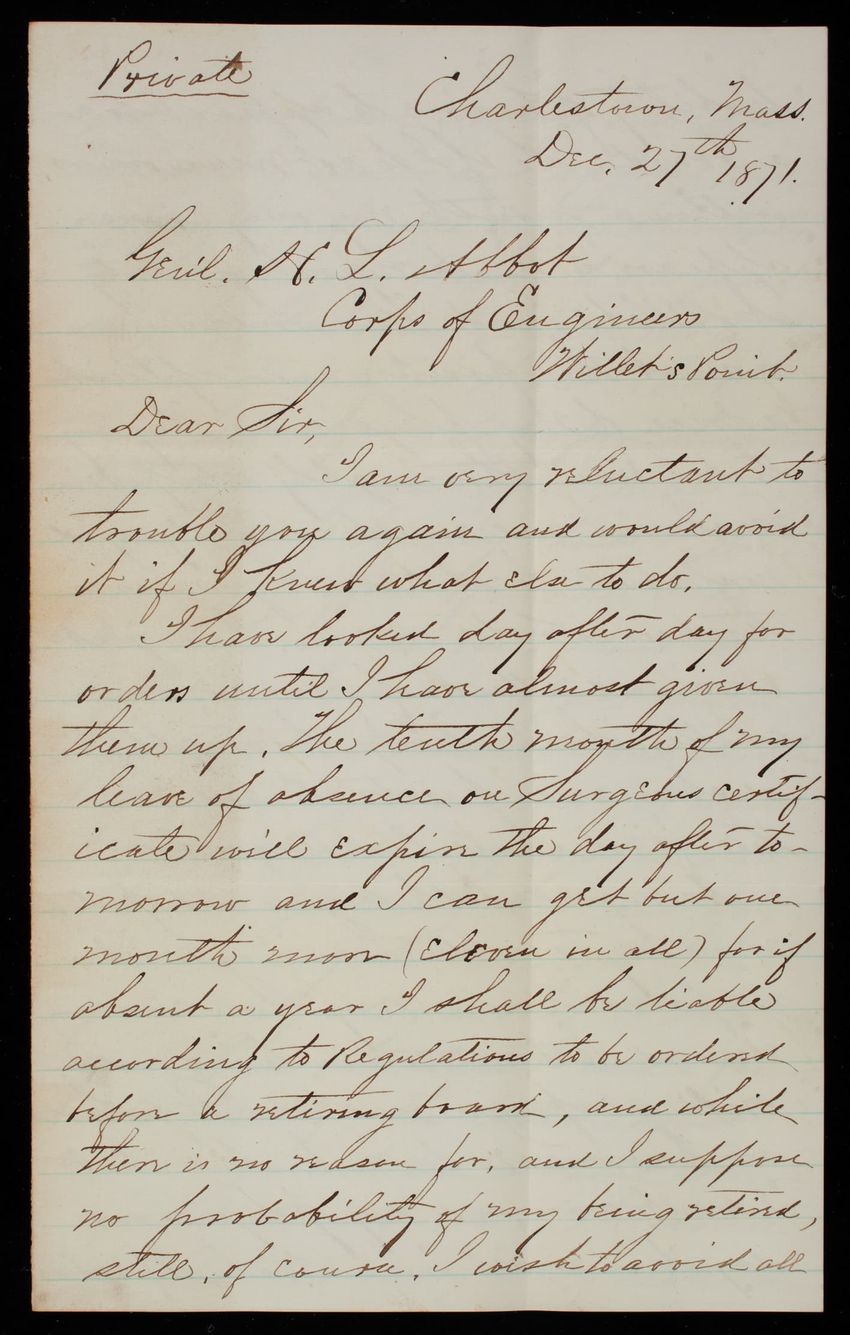 Private
Charlestown, Mass.
Dec. 27th 1871.
Gen'l. H. L. Abbot
Corps of Engineers
Willet's Point.
Dear Sir,
I am very reluctant to
trouble you again and would avoid
it if I knew what else to do.
I have looked day after day for
orders until I have almost given
them up. The tenth month of my
leave of absence on Surgeons certif-
icate will expire the day after to-
morrow and I can get but one
month more (eleven in all) for if
absent a year I shall be liable
according to Regulations to be ordered
before a retiring board, and while
there is no reason for, and I suppose
no probability of my being retired,
still, of course, I wish to avoid all